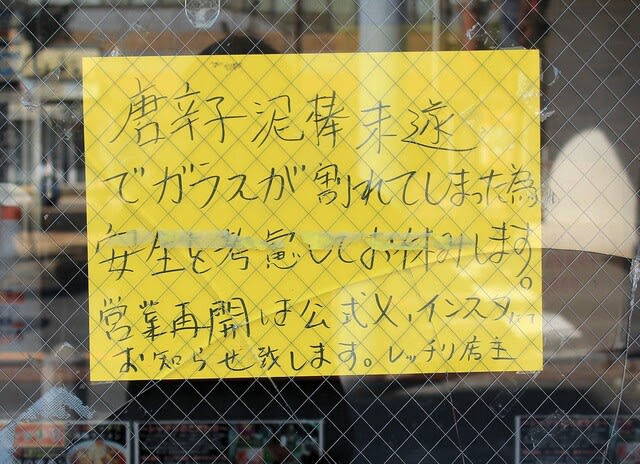 唐辛子泥棒未遂
でガラスが割れてしまった為
安全を考慮してお休みします。
営業再開は公式X,インスタにて
お知らせ致します。レッチリ店主